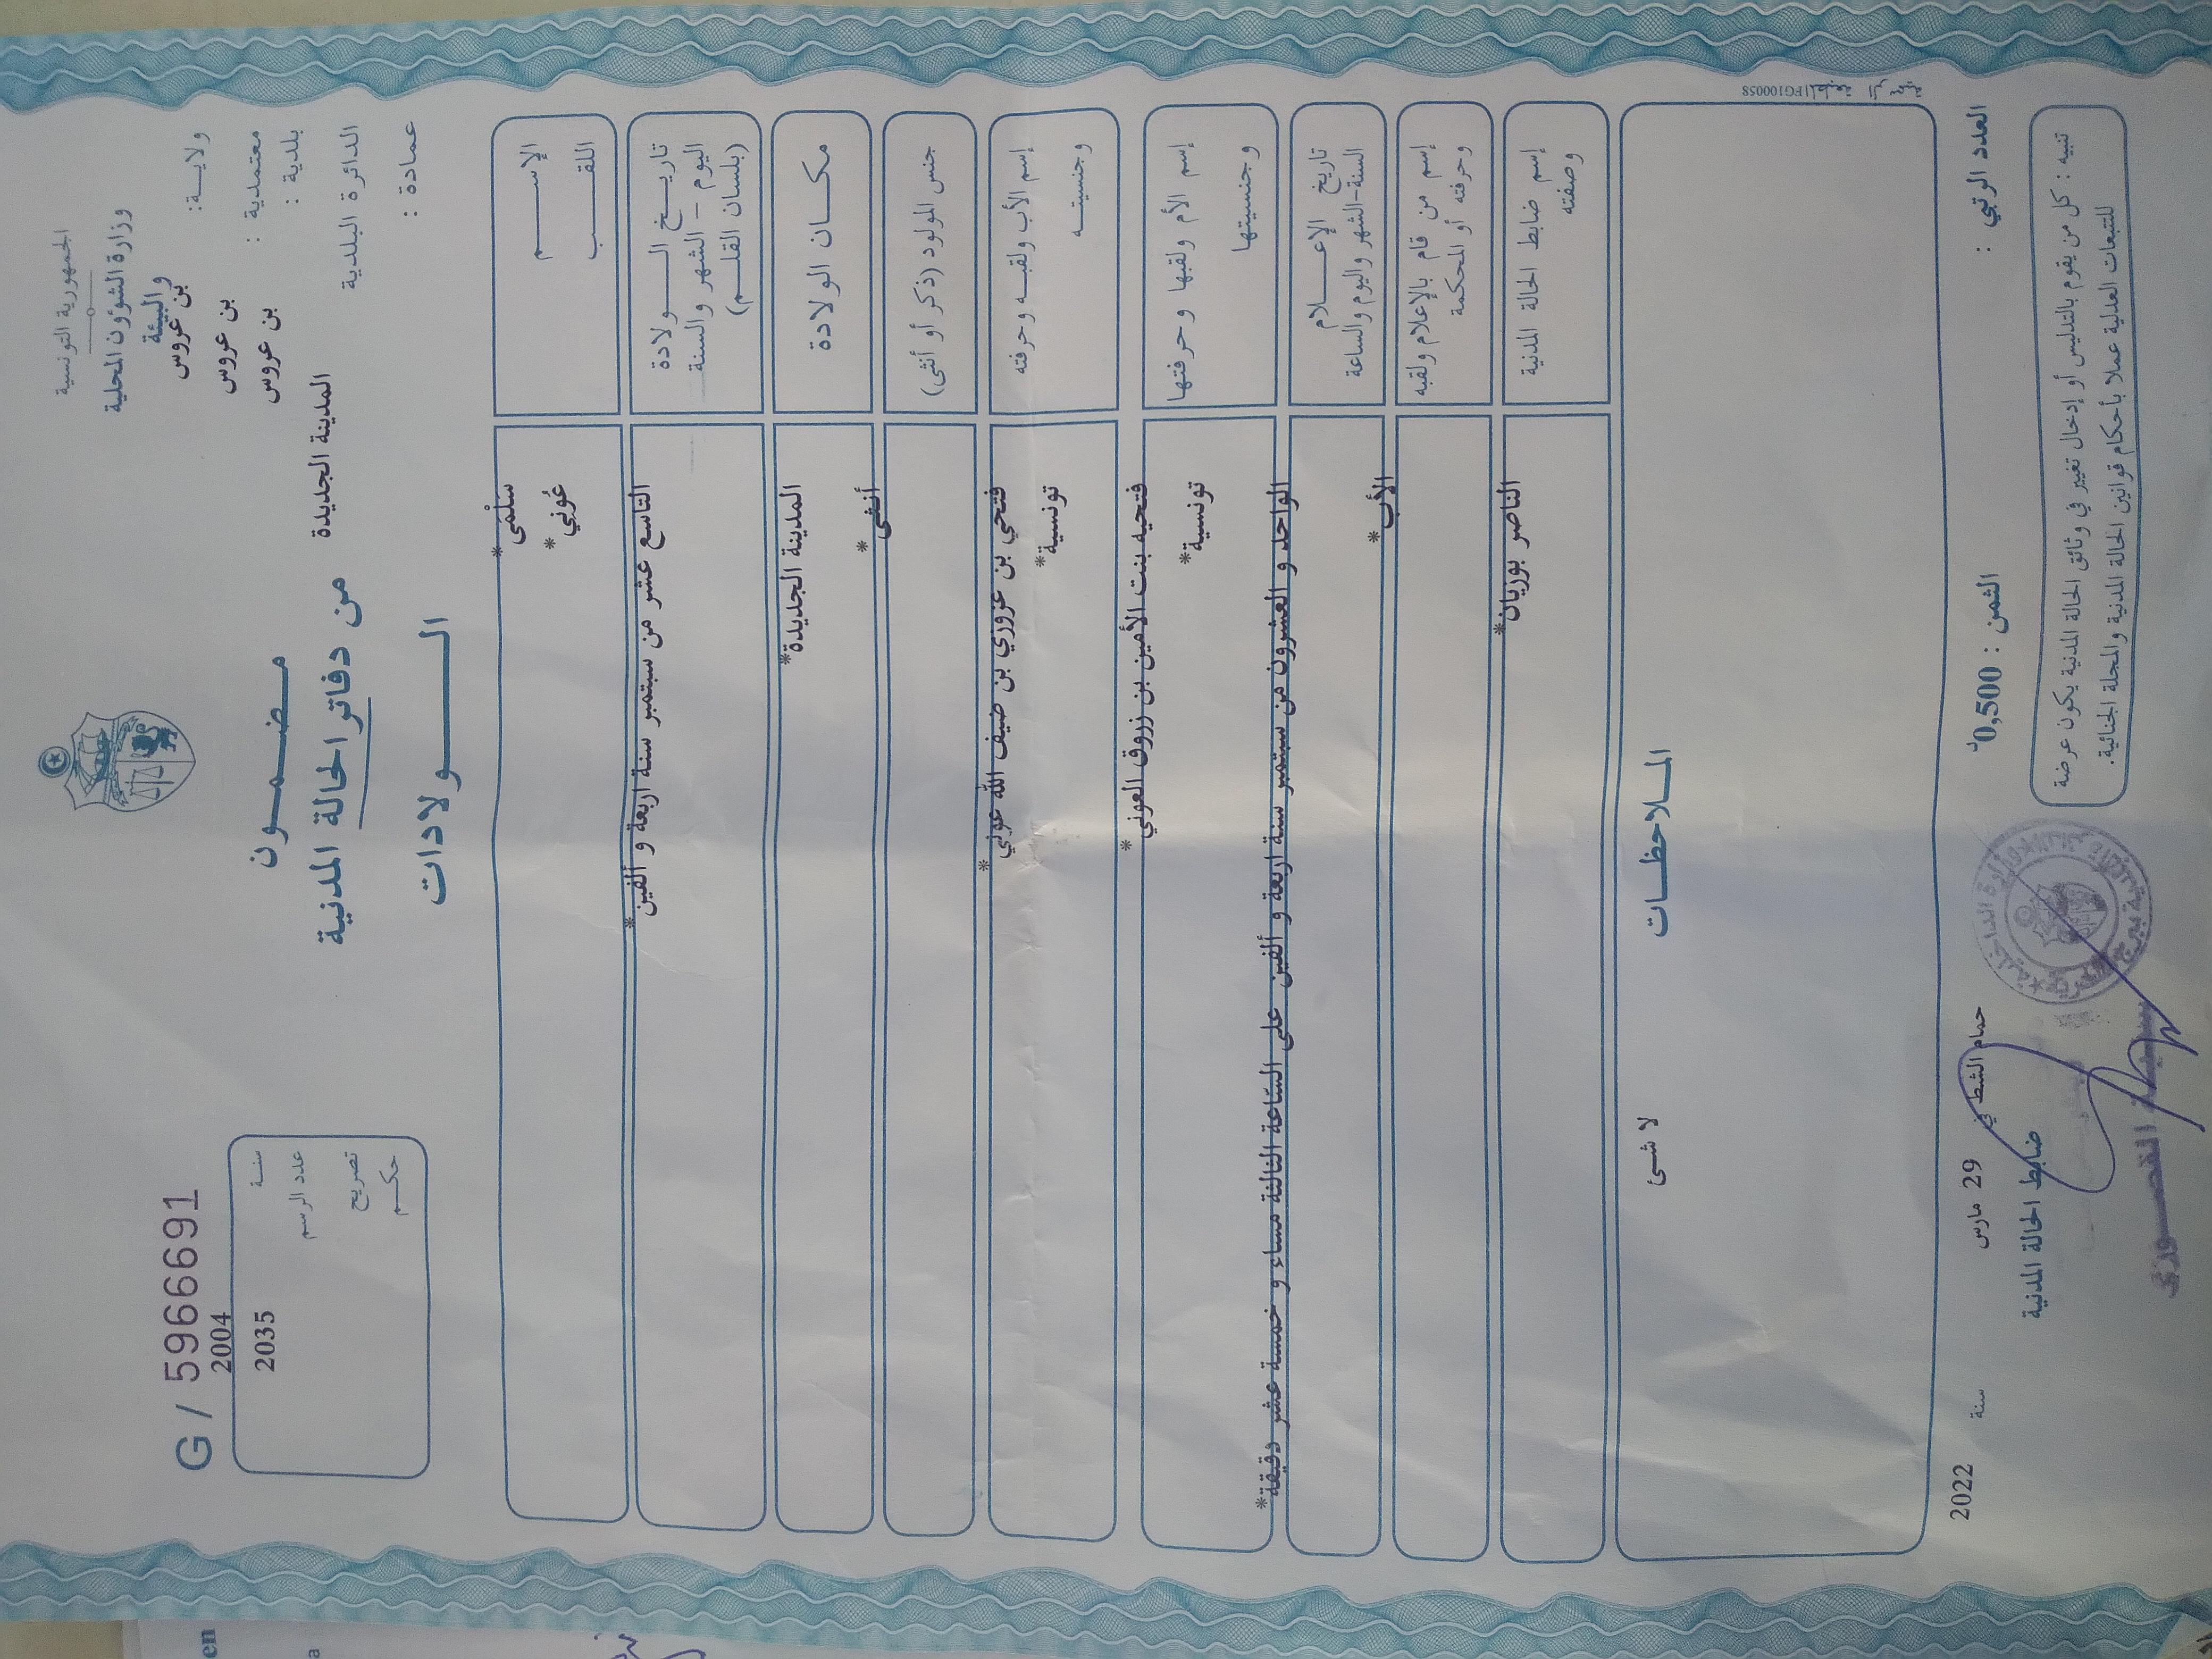 الجمهورية التونسية
وزارة الشؤون المحلية
والبيئة
ولاية: بن عروس
معتمدية : بن عروس
بلدية : بن عروس
الدائرة البلدية المدينة الجديدة
عمادة :
مضمون
من دفاتر الحالة المدنية
الولادات
G / 5966691
سنة 2004
عدد الرسم 2035
تصريح
حكم
الإسم سَلْمَى*
اللقب عُوني*
تاريخ الولادة
اليوم - الشهر والسنة
(بلسان القلم)
التاسع عشر من سبتمبر سنة اربعة و ألفين*
مكان الولادة المدينة الجديدة*
جنس المولود (ذكر أو أنثى) أنثى*
إسم الأب ولقبه وحرفته فتحي بن عزوزي بن ضيف الله عوني*
وجنسيته تونسية*
إسم الأم ولقبها وحرفتها فتحيه بنت الأمين بن زروق العوني*
وجنسيتها تونسية*
تاريخ الإعلام
السنة-الشهر واليوم والساعة
الواحد و العشرون من سبتمبر سنة اربعة و ألفين على الساعة الثالثة مساء و خمسة عشر دقيقة*
إسم من قام بالإعلام ولقبه الأب*
وحرفته أو المحكمة
إسم ضابط الحالة المدنية الناصر بوزيان*
وصفته
الملاحظات
لا شئ
المطبعة الرسمية PG100058
العدد الرتبي :
الثمن : 0,500د
حمام الشط في 29 مارس سنة 2022
ضابط الحالة المدنية
تنبيه : كل من يقوم بالتدليس أو إدخال تغيير في وثائق الحالة المدنية يكون عرضة
للتتبعات العدلية عملا بأحكام قوانين الحالة المدنية والمجلة الجنائية.
en
a